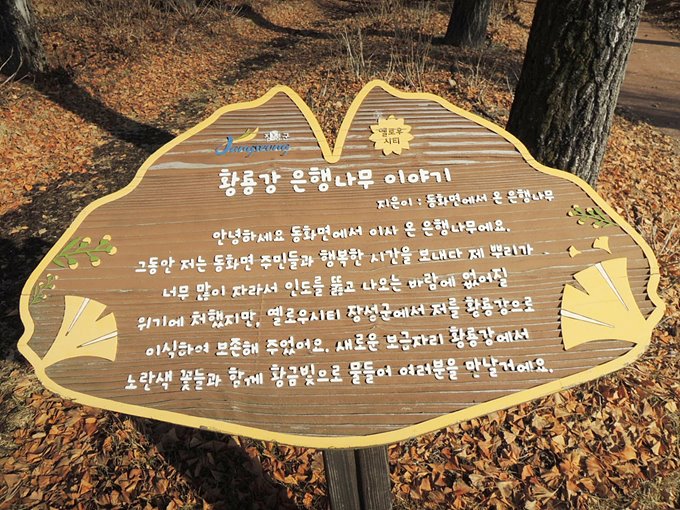 장성군
Jangseong
옐로우
시티
황룡강 은행나무 이야기
지은이 : 동화면에서 온 은행나무
안녕하세요 동화면에서 이사 온 은행나무예요.
그동안 저는 동화면 주민들과 행복한 시간을 보내다 제 뿌리가
너무 많이 자라서 인도를 뚫고 나오는 바람에 없어질
위기에 처했지만, 옐로우시티 장성군에서 저를 황룡강으로
이식하여 보존해 주었어요. 새로운 보금자리 황룡강에서
노란색 꽃들과 함께 황금빛으로 물들어 여러분을 만날거예요.